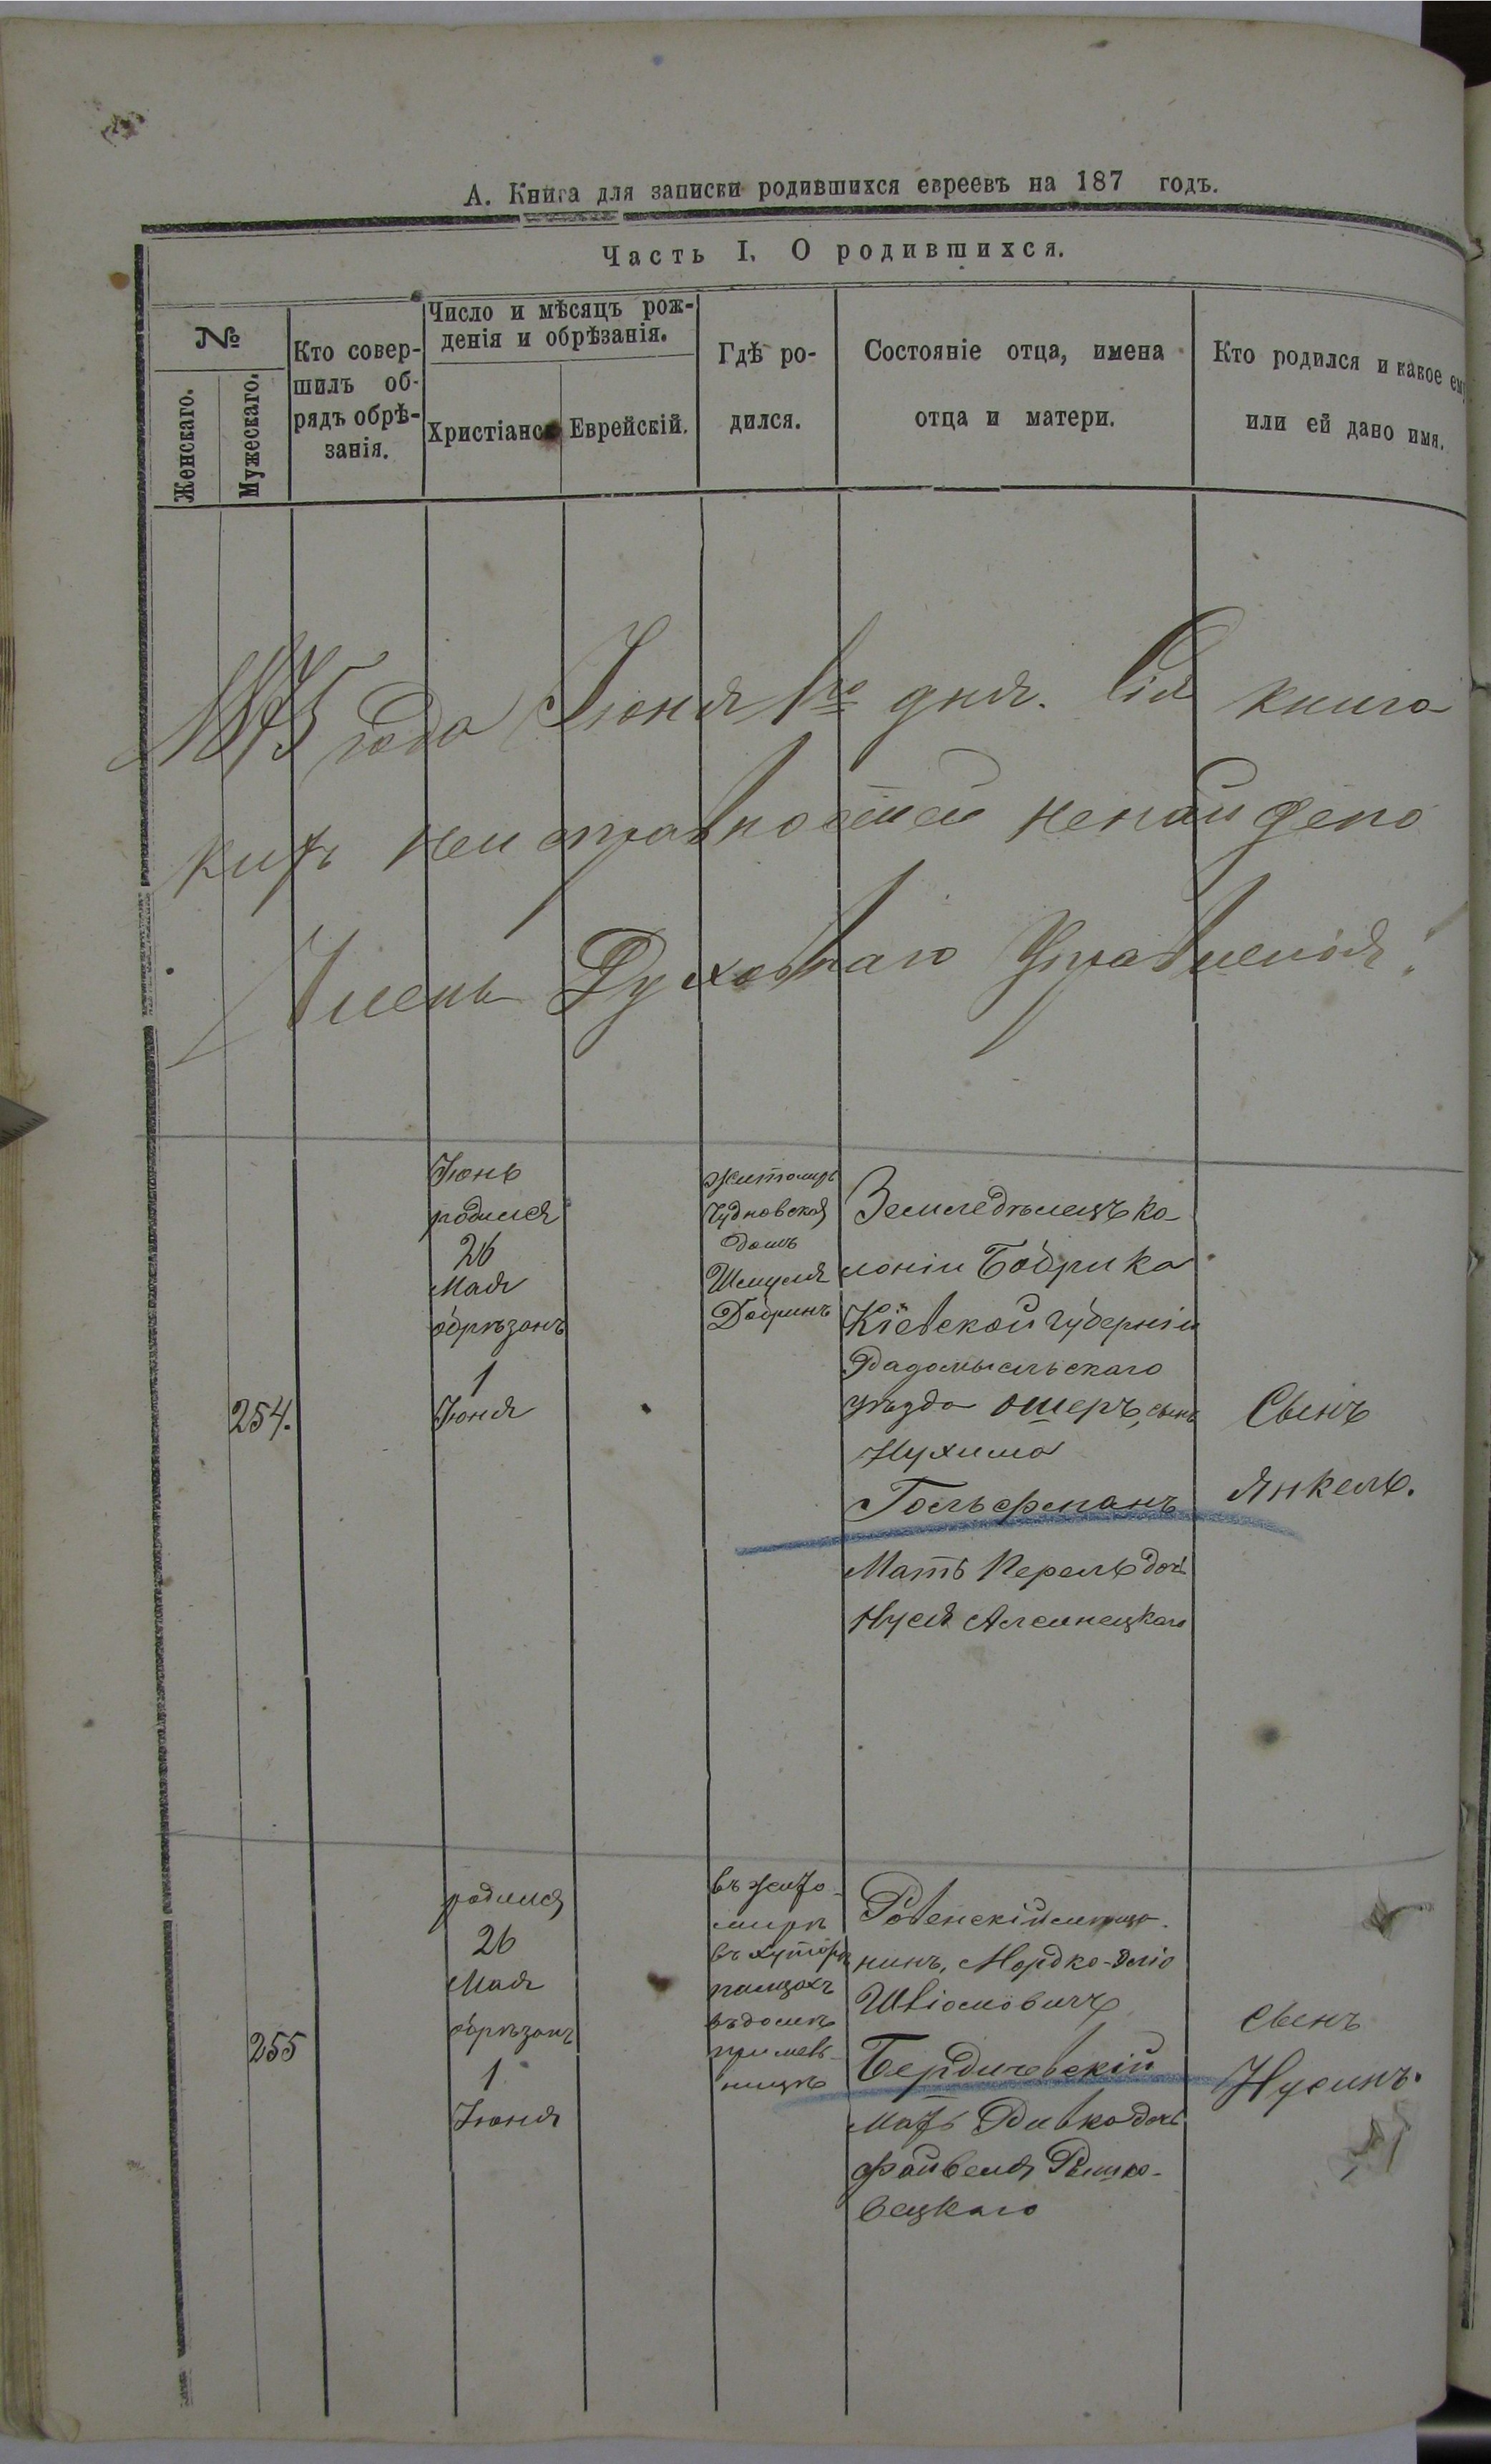 А. Книга для записки родившихся евреевъ на 187 годъ.
Часть I. О родившихся.
№
Женскаго.
Мужескаго.
Кто совер-
шилъ об-
рядъ обрѣ-
занія.
Число и мѣсяцъ рож-
денія и обрѣзанія.
Христіанск
Еврейскій.
Гдѣ ро-
дился.
Состояніе отца, имена
отца и матери.
Кто родился и какое ему
или ей дано имя.
1875 года Іюня 1го дня. Сія книга
кихъ неисправностей ненайдено
Членъ Духовнаго Правленія:
254.
Іюнь
родился
26
Мая
обрѣзанъ
1
Іюня
Житомиръ
Чудновской
домъ
Шмуля
Добринъ
Земледѣлецъ ко-
лоніи Бобрика
Кіевской губерніи
Радомысльскаго
уѣзда Ошеръ, сынъ
Нухима
Гольфманъ
Мать Перель дочь
Нуся
Сынъ
Янкель.
255
родился
26
Мая
обрѣзанъ
1
Іюня
въ Жито-
мирѣ
въ хуторѣ
въ домѣ
Ровенскій мѣща-
нинъ, Мордко-Эліо
Бердичевскій
мать Ривка дочь
Файвеля
вецкаго
Сынъ
Нусинъ.